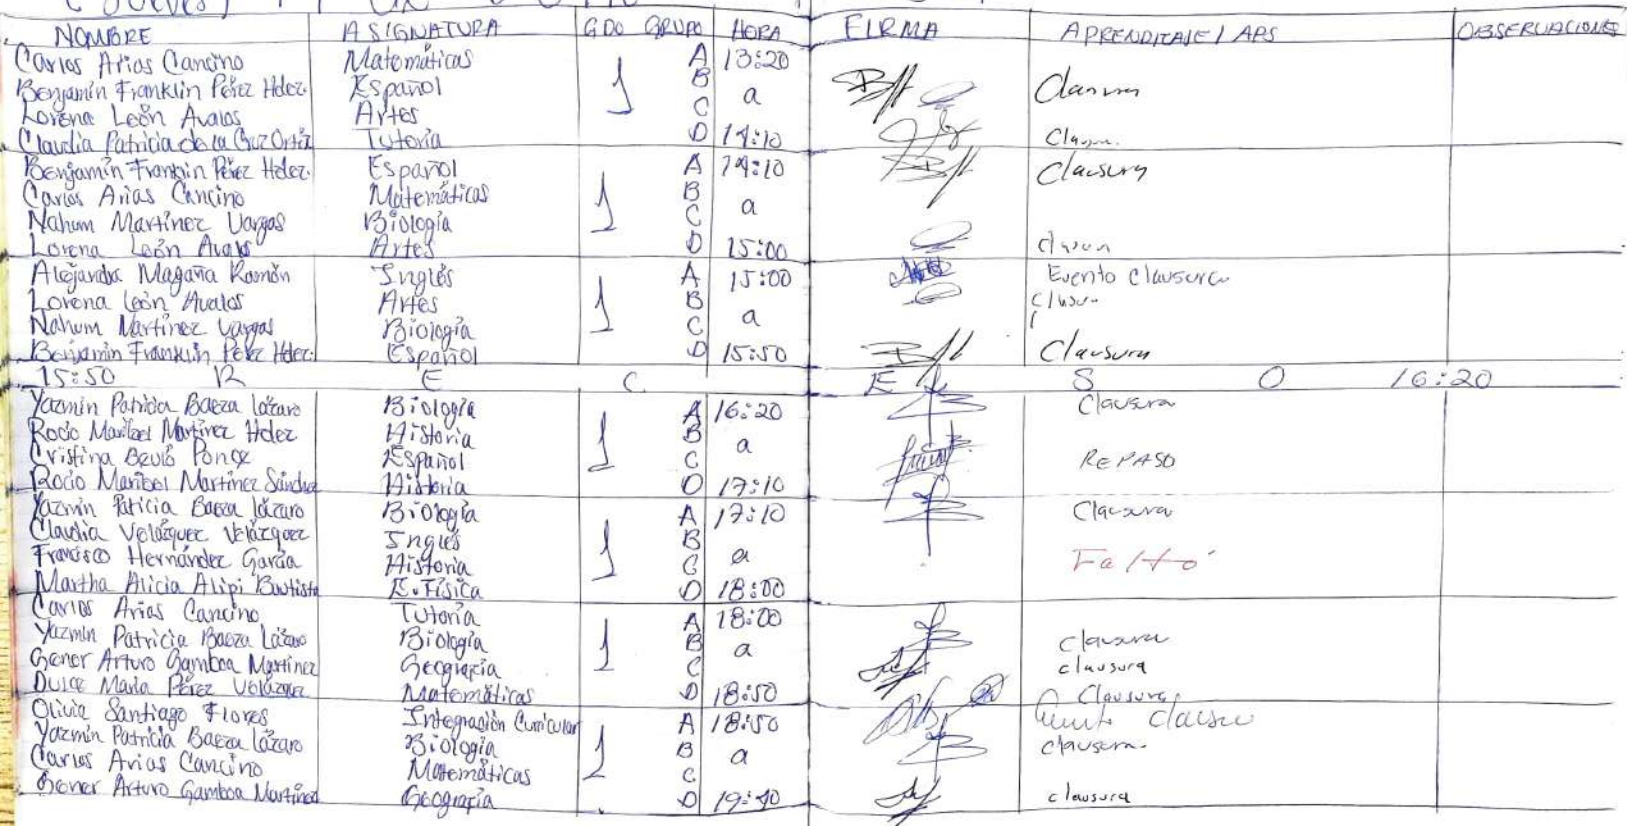 NOMBRE ASIGNATURA GDO GRUPO HORA FIRMA APRENDIZAJE / APS OBSERVACIONES
Carlos Arias Cancino Matemáticas 1 A 13:20
Benjamín Franklin Pérez Hdez. Español B a
Lorena León Avalos Artes C
Claudia Patricia de la Cruz Ortiz Tutoría D 14:10
Benjamín Franklin Pérez Hdez. Español 1 A 14:10 Clausura
Carlos Arias Cancino Matemáticas B
Nahum Martínez Vargas Biología C a
Lorena León Avalos Artes D 15:00
Alejandra Magaña Román Inglés 1 A 15:00 Evento Clausura
Lorena León Avalos Artes B
Nahum Martínez Vargas Biología C a
Benjamín Franklin Pérez Hdez. Español D 15:50 Clausura
15:50 R E C E S O 16:20
Yazmín Patricia Baeza Lázaro Biología 1 A 16:20 Clausura
Rocío Maribel Martínez Hdez Historia B a
Cristina Ponce Español C REPASO
Rocío Maribel Martínez Sánchez Historia D 17:10
Yazmín Patricia Baeza Lázaro Biología 1 A 17:10 Clausura
Claudia Velázquez Velázquez Inglés B
Francisco Hernández García Historia C a Faltó
Martha Alicia Alipi Bautista E. Física D 18:00
Carlos Arias Cancino Tutoría 1 A 18:00
Yazmín Patricia Baeza Lázaro Biología B a clausura
Gener Arturo Gamboa Martínez Geografía C clausura
Dulce María Pérez Velázquez Matemáticas D 18:50 Clausura
Olivia Santiago Flores Integración Curricular 1 A 18:50
Yazmín Patricia Baeza Lázaro Biología B a clausura.
Carlos Arias Cancino Matemáticas C
Gener Arturo Gamboa Martínez Geografía D 19:40 clausura